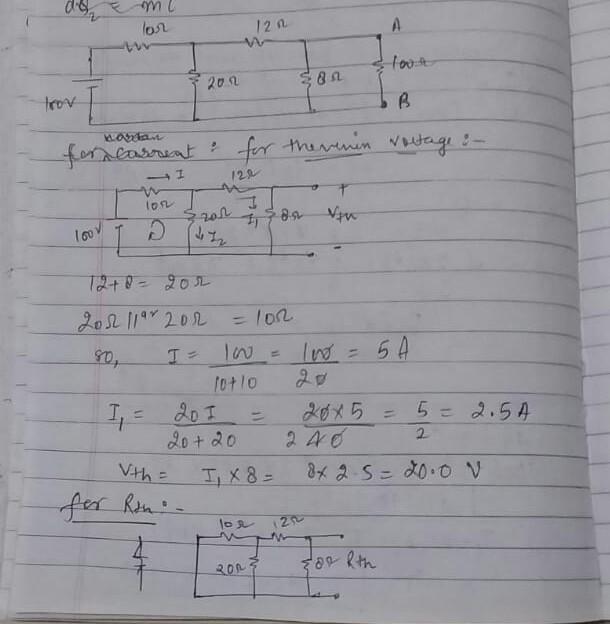 dQ₂ = mc
10Ω 12Ω A
100V 20Ω 8Ω 100Ω
B
for current : for thevenin voltage :-
→ I 12Ω
10Ω I +
100V 20Ω I₁ 8Ω Vth
↓ I₂ -
12+8 = 20Ω
20Ω 11ᵃʳ 20Ω = 10Ω
so, I = 100/10+10 = 100/20 = 5 A
I₁ = 20I/20+20 = 20×5/240 = 5/2 = 2.5 A
Vth = I₁ × 8 = 8× 2.5 = 20.0 V
for Rth :-
10Ω 12Ω
20Ω 8Ω Rth